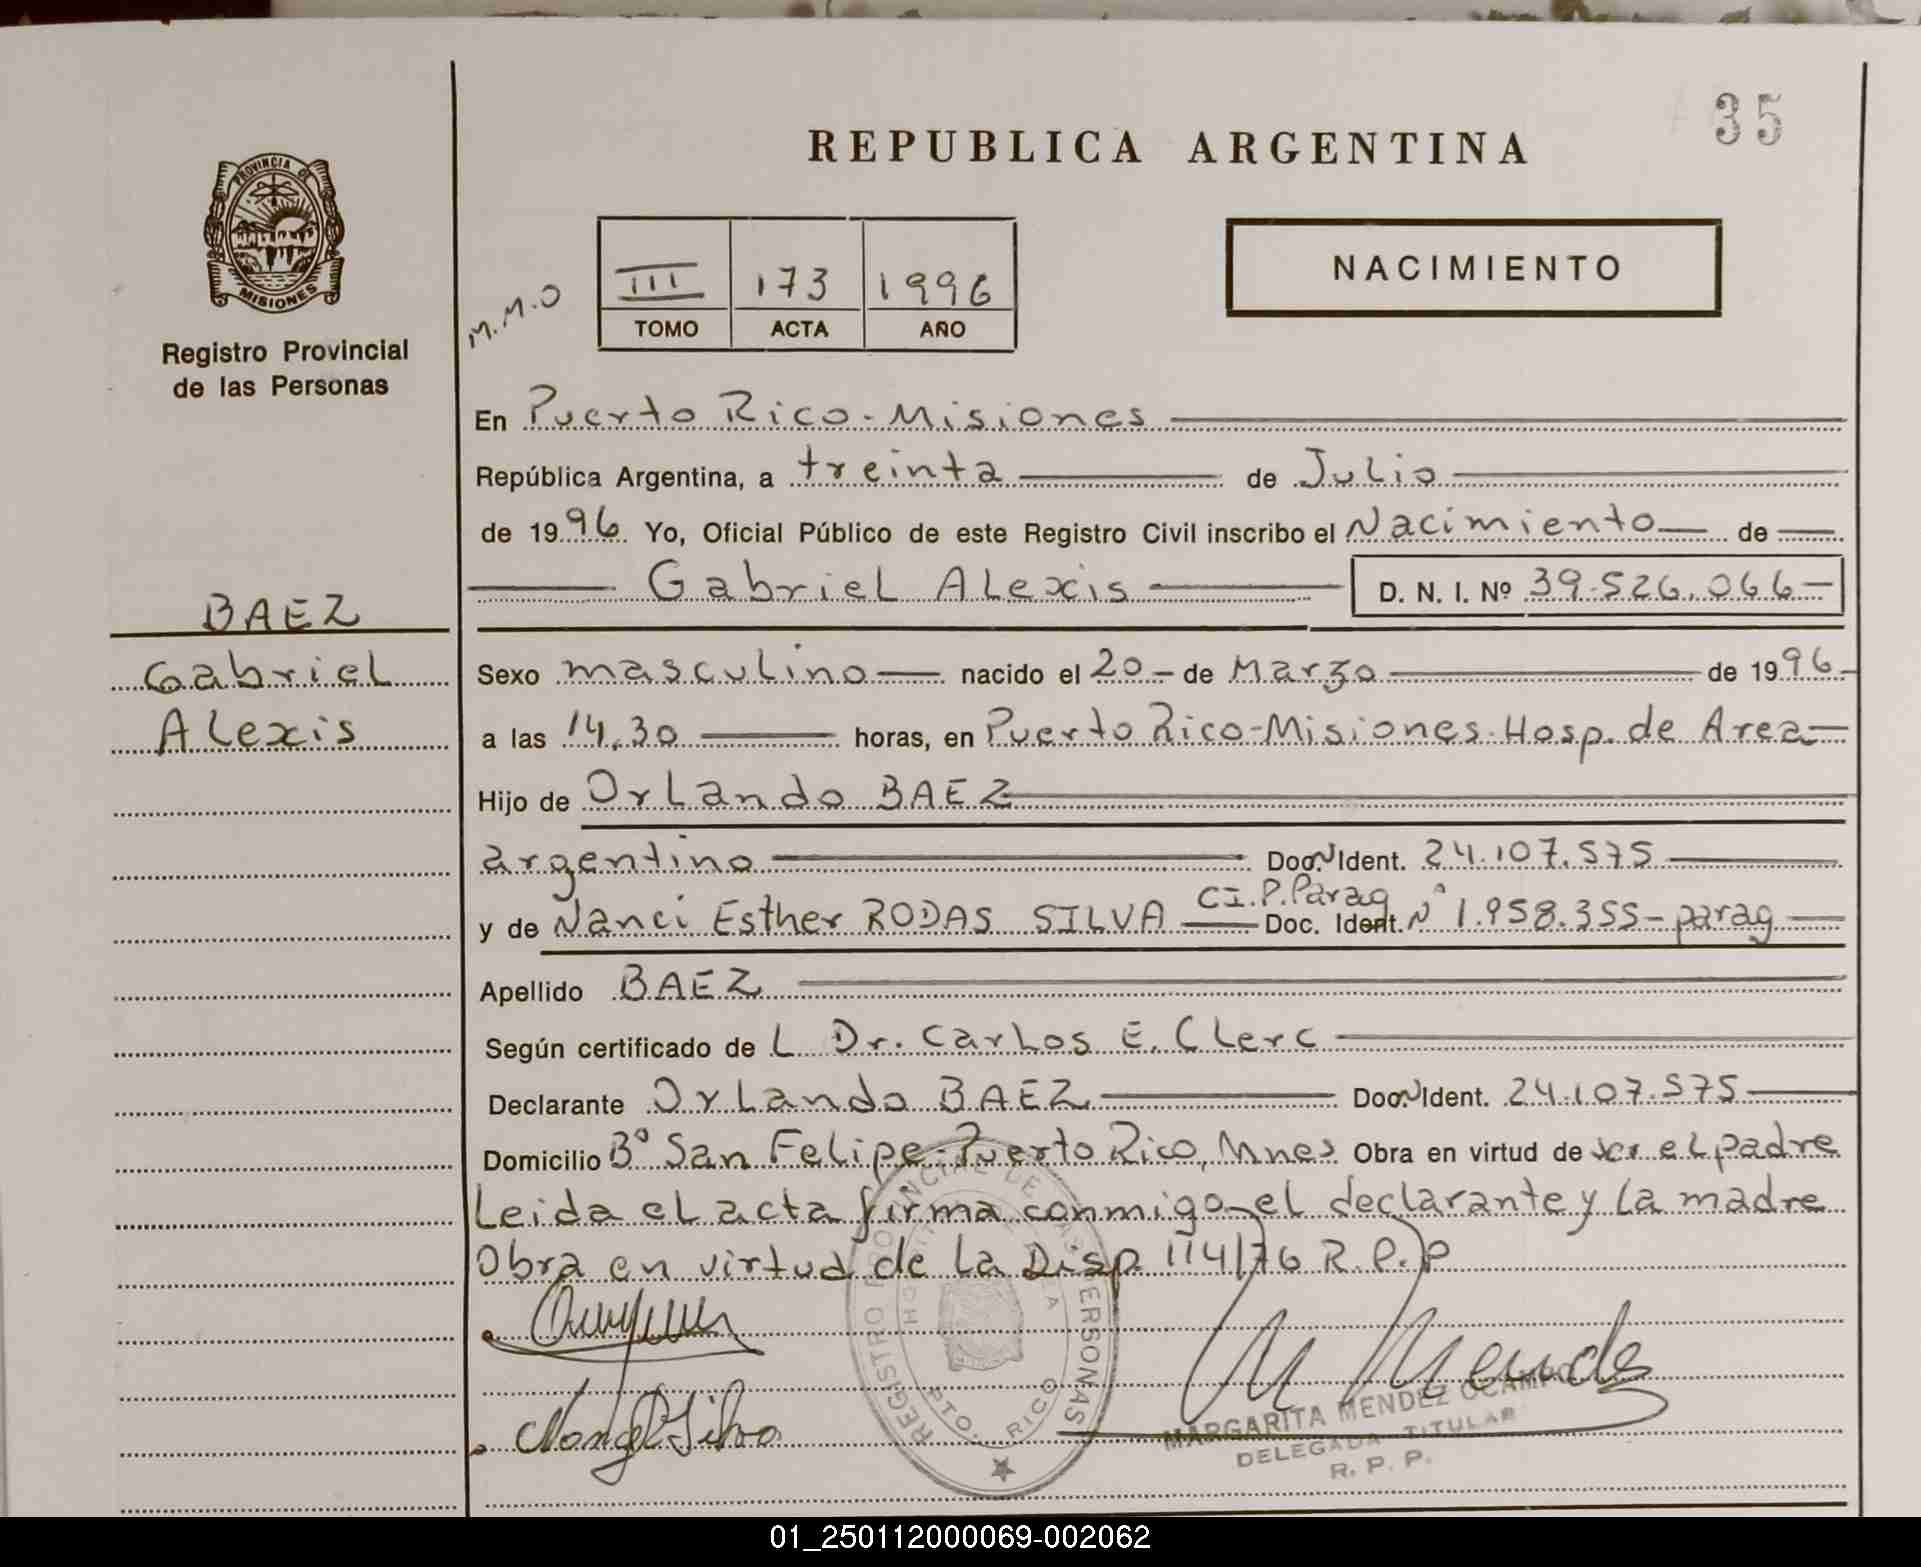 35
REPUBLICA ARGENTINA
PROVINCIA DE
MISIONES
Registro Provincial
de las Personas
M.M.O
III 173 1996
TOMO ACTA AÑO
NACIMIENTO
En Puerto Rico - Misiones
República Argentina, a treinta de Julio
de 1996 Yo, Oficial Público de este Registro Civil inscribo el Nacimiento de
Gabriel Alexis D. N. I. Nº 39.526.066
BAEZ
Gabriel
Alexis
Sexo masculino nacido el 20 de Marzo de 1996
a las 14,30 horas, en Puerto Rico-Misiones-Hosp. de Area
Hijo de Orlando BAEZ
argentino Doc. Ident. 24.107.575
C.I.P.Parag
y de Nanci Esther RODAS SILVA Doc. Ident. Nº 1.958.355-parag
Apellido BAEZ
Según certificado de L Dr. Carlos E. Clerc
Declarante Orlando BAEZ Doc. Ident. 24.107.575
Domicilio Bº San Felipe-Puerto Rico, Mnes Obra en virtud de ser el padre
Leida el acta firma conmigo el declarante y la madre
Obra en virtud de la Disp. 114/76 R.P.P
REGISTRO PROVINCIAL DE LAS PERSONAS
PTO. RICO
M Mendez
MARGARITA MENDEZ OCAMPO
DELEGADA TITULAR
R. P. P.
01_250112000069-002062